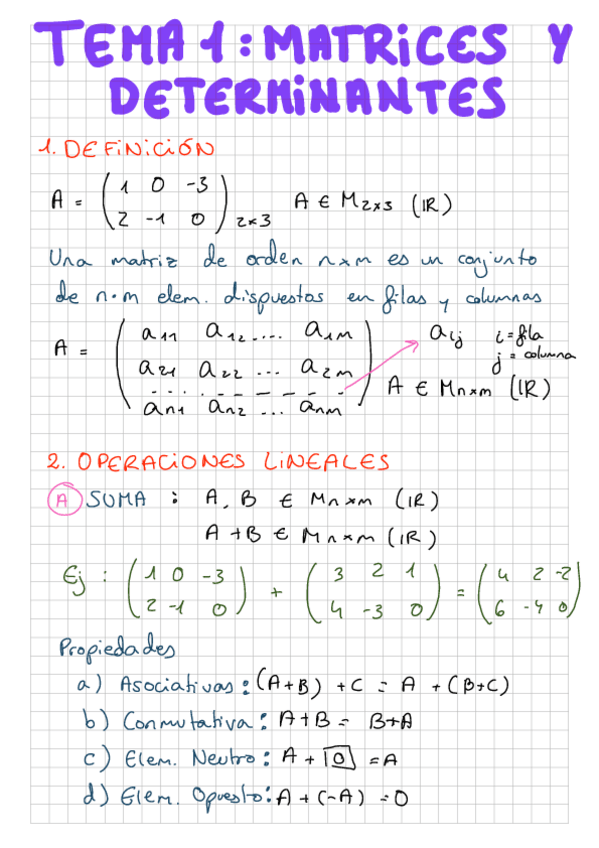 TEMA 1: MATRICES Y
DETERMINANTES
1. DEFINICIÓN
A = ( 1 0 -3 ; 2 -1 0 ) 2x3 A ∈ M2x3 (IR)
Una matriz de orden nxm es un conjunto
de n·m elem. dispuestos en filas y columnas
A = ( a11 a12 .... a1m ; a21 a22 ... a2m ; an1 an2 ... anm ) aij i = fila
j = columna
A ∈ Mnxm (IR)
2. OPERACIONES LINEALES
A SUMA : A, B ∈ Mnxm (IR)
A + B ∈ Mnxm (IR)
Ej : ( 1 0 -3 ; 2 -1 0 ) + ( 3 2 1 ; 4 -3 0 ) = ( 4 2 -2 ; 6 -4 0 )
Propiedades
a) Asociativas : (A+B) + C = A + (B+C)
b) Conmutativa : A+B = B+A
c) Elem. Neutro : A + 0 = A
d) Elem. Opuesto : A + (-A) = 0